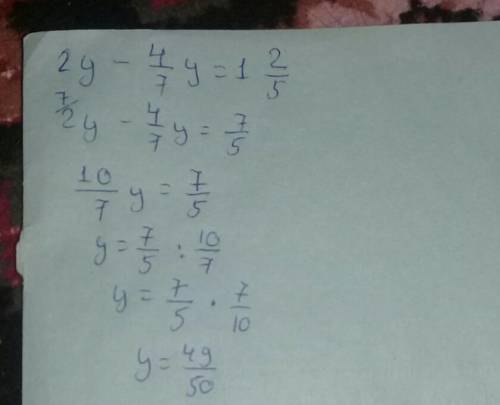 2y - 4/7 y = 1 2/5
7/ 2y - 4/7 y = 7/5
10/7 y = 7/5
y = 7/5 : 10/7
y = 7/5 · 7/10
y = 49/50